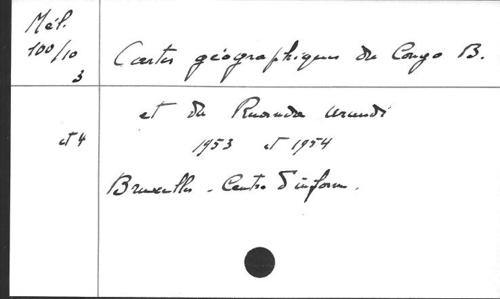 Mél.
100/10
3
Cartes géographiques du Congo B.
et du Ruanda Urundi
et 4
1953 et 1954
Bruxelles - Centre d'inform.